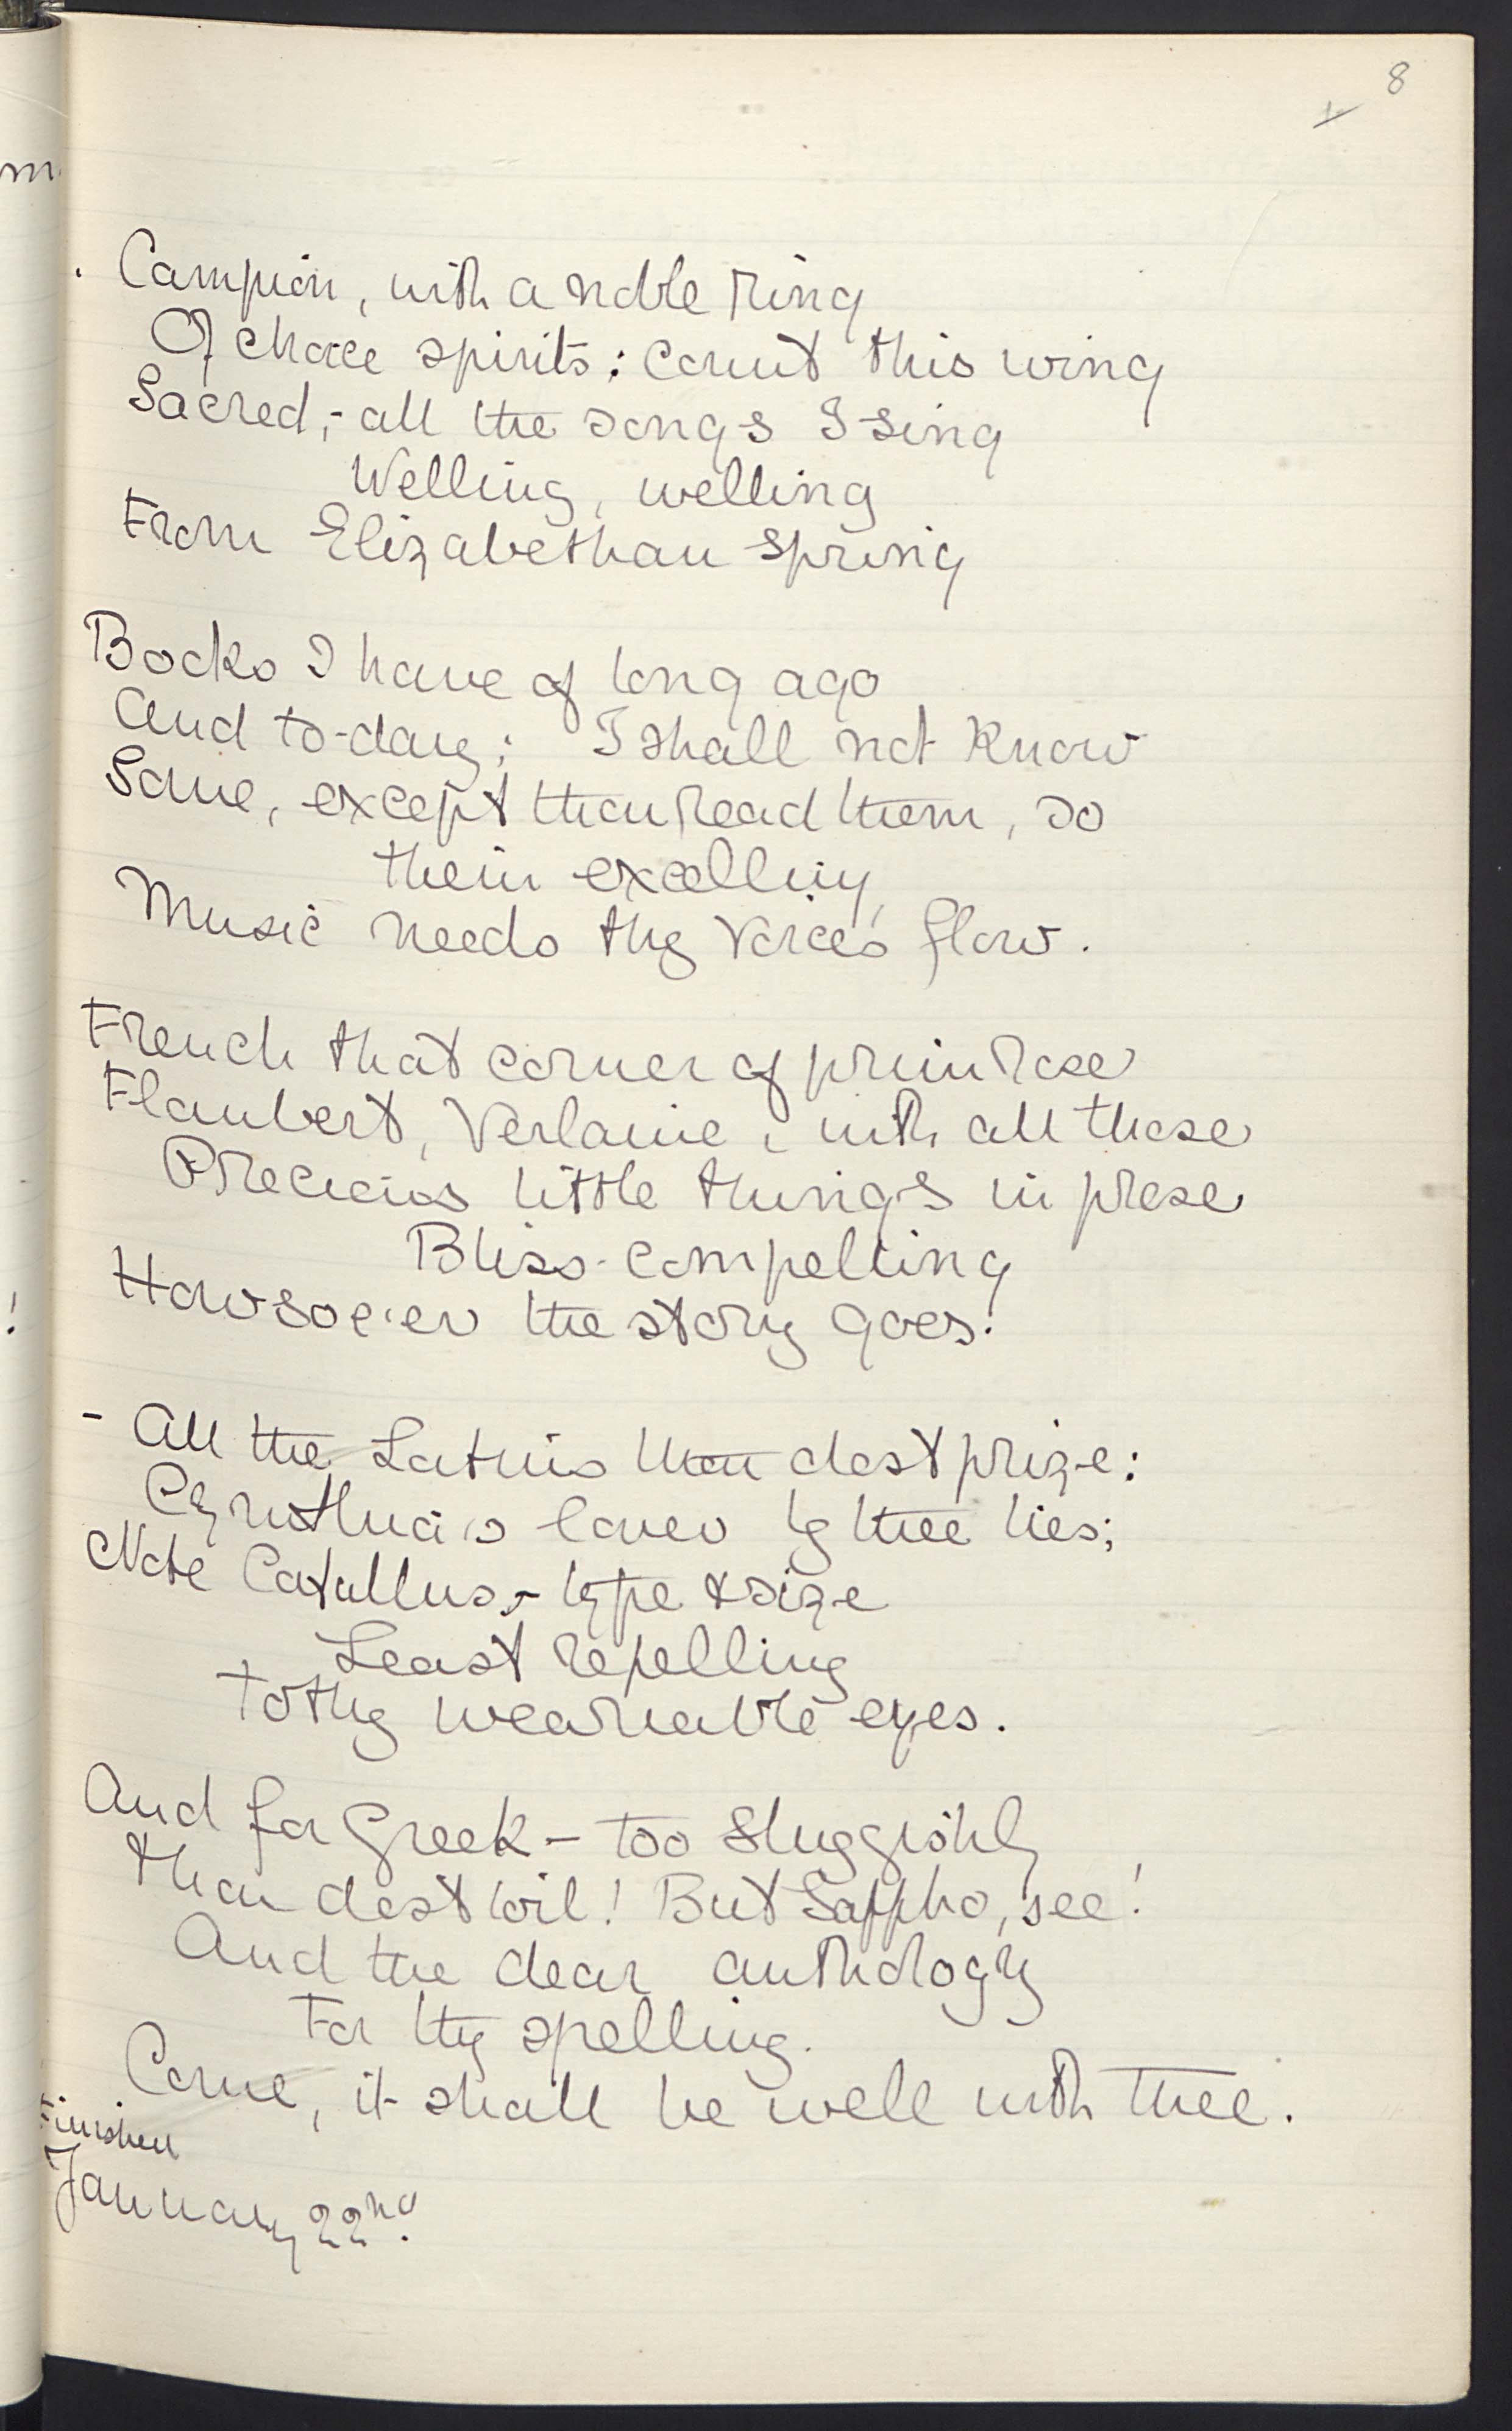 8
Campion, with a noble ring
Of choice spirits: count this wing
Sacred,- all the songs I sing
Welling, welling
From Elizabethan spring
Books I have of long ago
And to-day; I shall not know
Some, except thou read them, so
Their excelling
Music needs thy voice's flow.
French that corner of primrose
Flaubert, Verlaine, with all those
Precious little things in prose
Bliss-compelling
Howsoe'er the story goes.
- All the Latins thou dost prize:
Cynthia's lover by thee lies;
Note Catullus,- type & size
Least repelling
To thy weariable eyes.
And for Greek - too sluggishly
Thou dost toil! But Sappho, see!
And the dear anthology
For thy spelling.
Come, it shall be well with thee.
Finished
January 22nd.